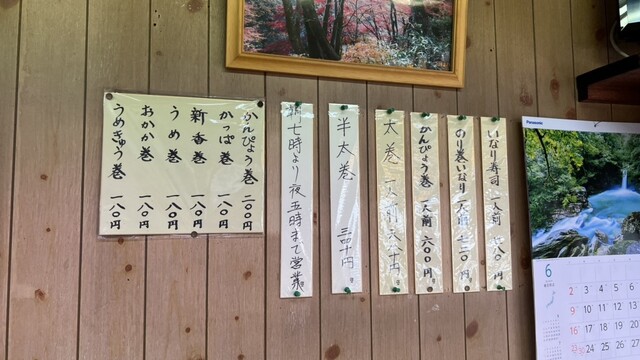 いなり寿司 一人前 四八〇円
のり巻いなり 一人前
かんぴょう巻 一人前 六〇〇円
太巻 一人前 六八十円
半太巻 三四十円
朝七時より夜五時まで営業
かんぴょう巻 二〇〇円
かっぱ巻 一八〇円
新香巻 一八〇円
うめ巻 一八〇円
おかか巻 一八〇円
うめきゅう巻 一八〇円
Panasonic
6
2 3 4 5
9 10 11 12
16 17 18 19
24 25 26